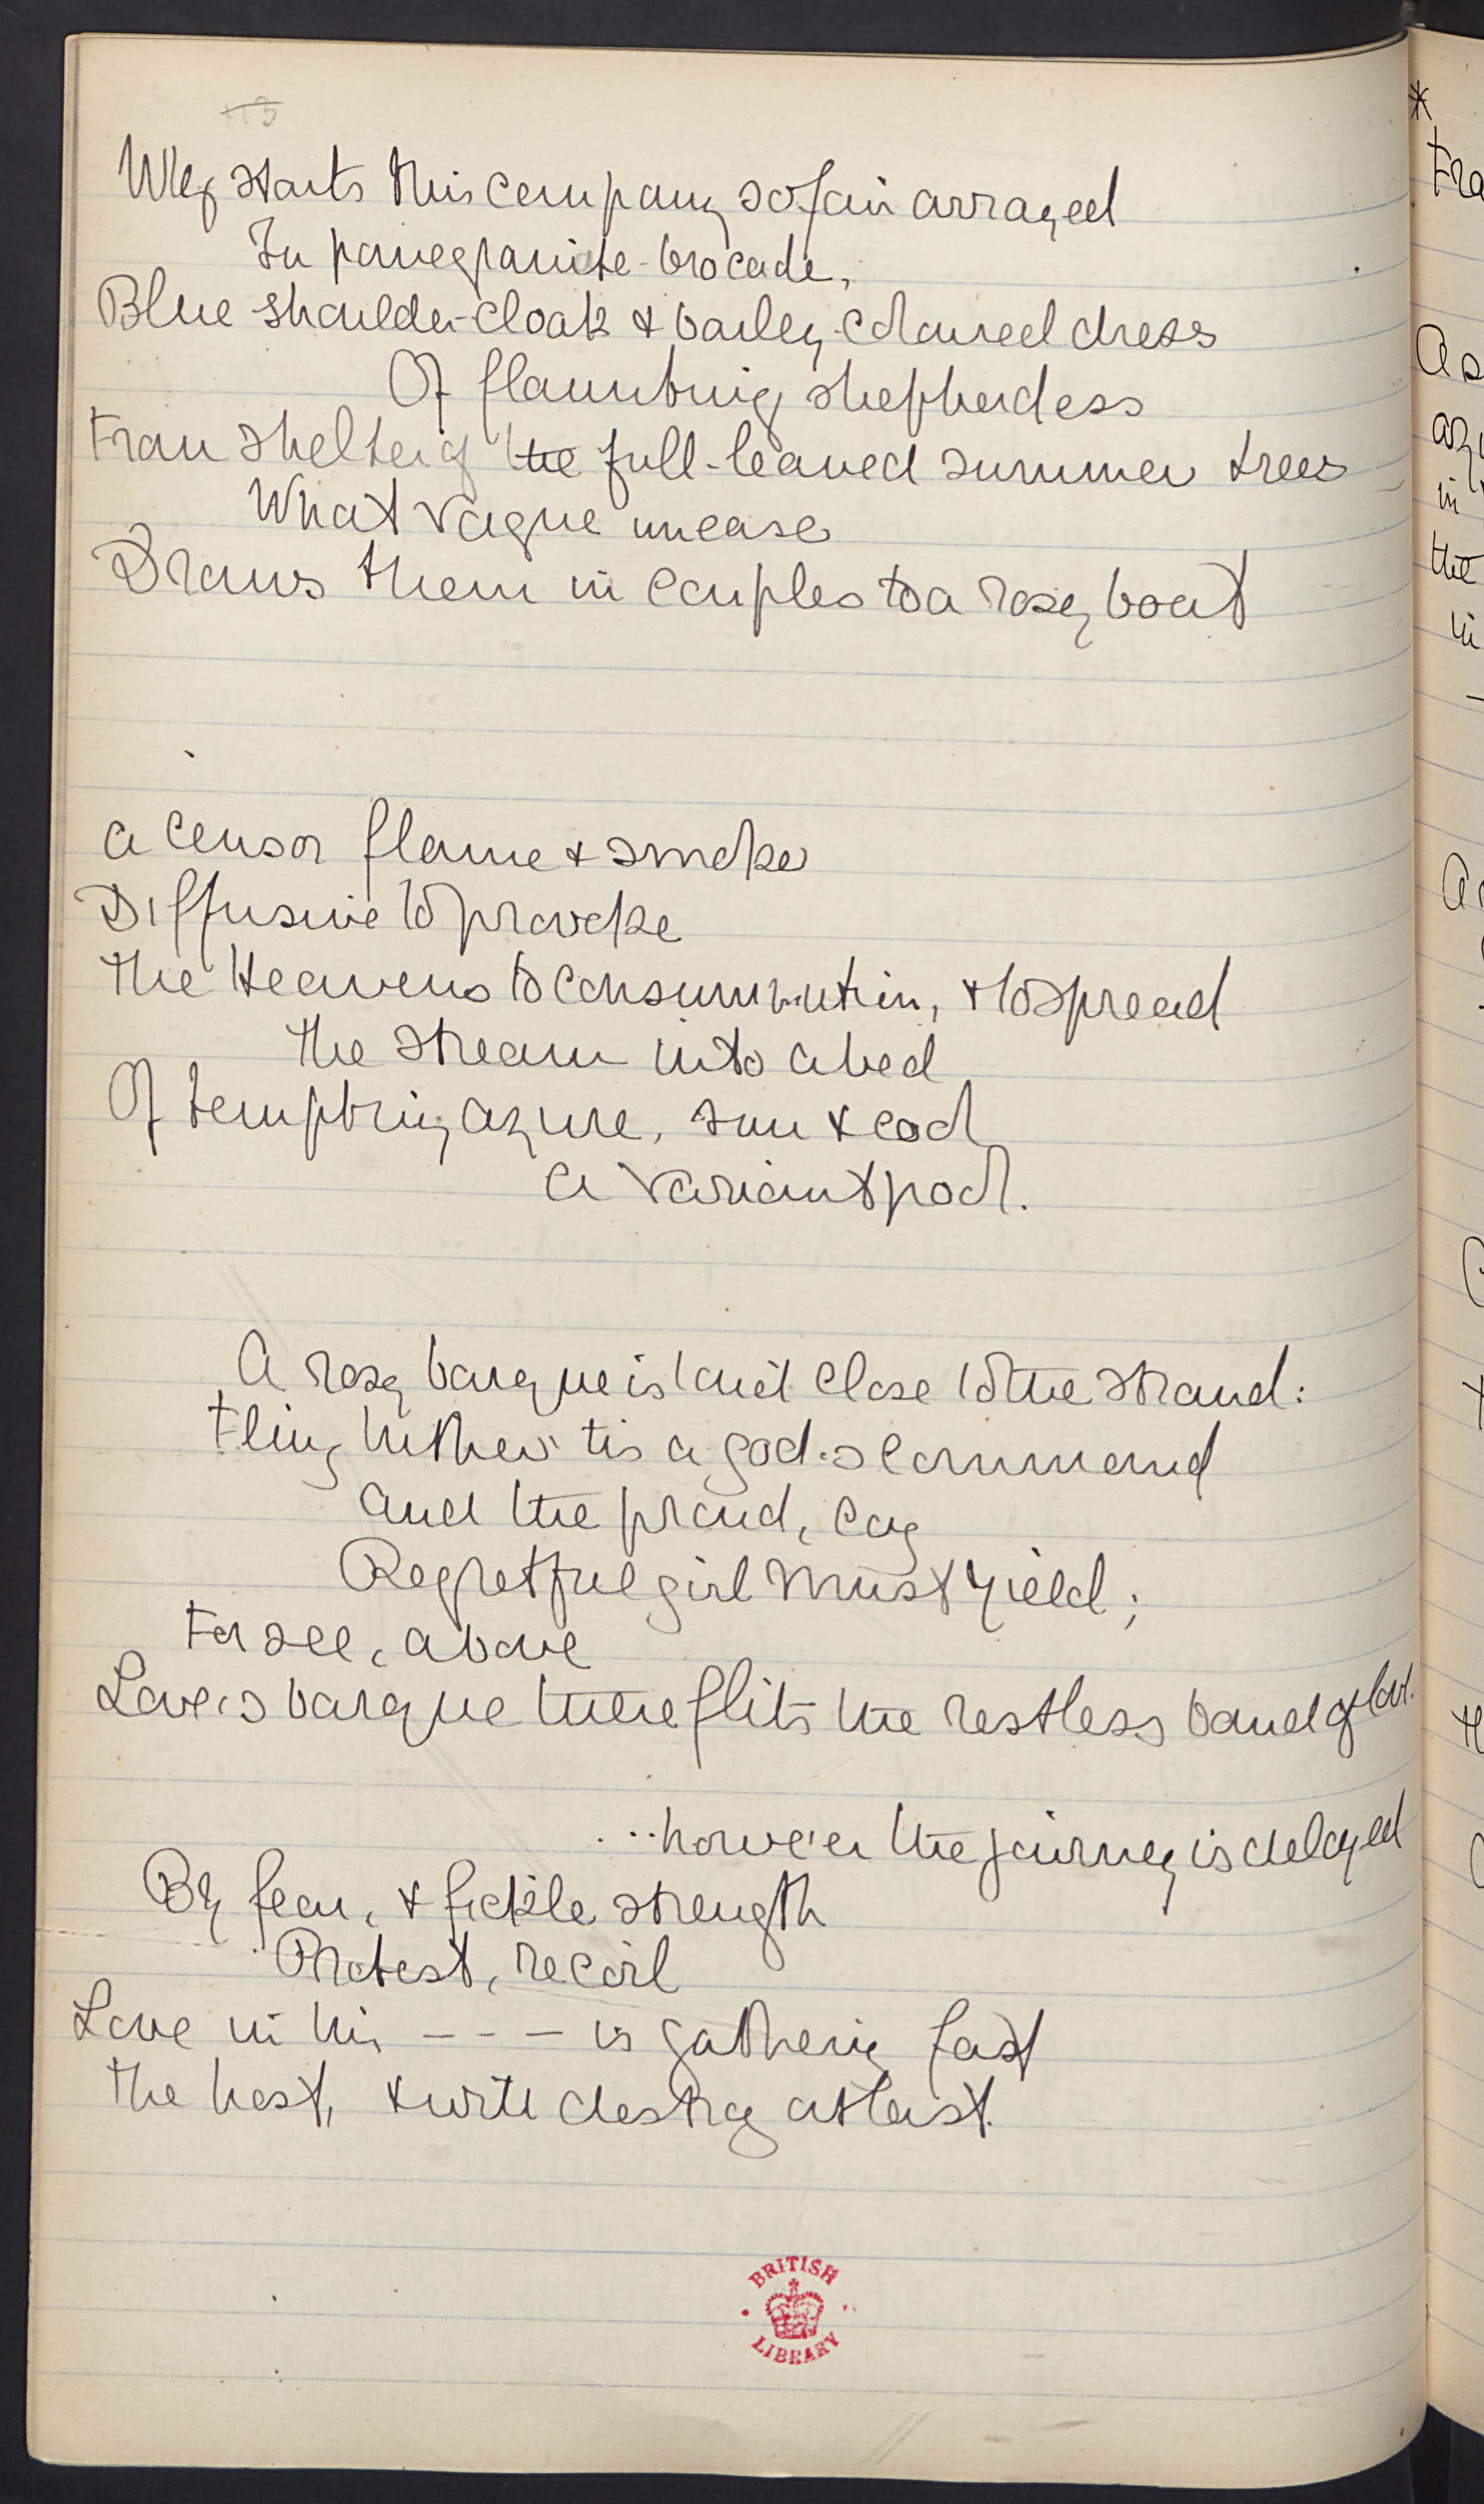 113
Why starts this company so fair arrayed
In pomegranite-brocade,
Blue shoulder-cloak & barley-coloured dress
Of flaunting shepherdess
From shelter of the full-leaved summer trees
What vague unease
Draws them in couples to a rosy boat
a censor flame & smoke
Diffusive to provoke
The Heavens to consummation, & to spread
The stream into a bed
Of tempting azure, sun & cool
a variant pool.
A rosy barque is laid close to the strand:
Fling hither tis a god's command
and the proud, coy
Regretful girl must yield;
For see, above
Love's barque there flits the restless band of love.
...howe'er the journey is delayed
By fear, & fickle strength
Protest, recoil
Love in his --- is gathering fast
The host, & will destroy at last.
BRITISH
LIBRARY